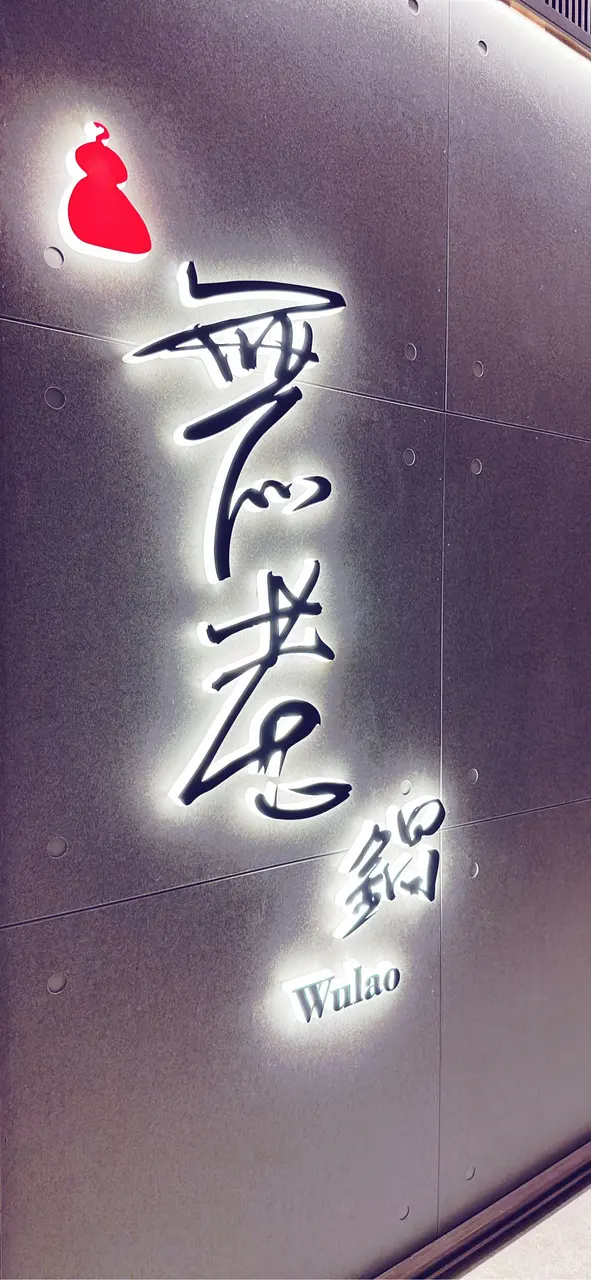 無老
鍋
Wulao